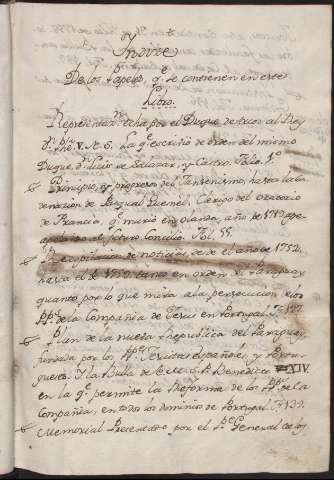 Yndize
De los Papeles, q.e se contienen en este
Libro.
Representaz.n echa por el Duque de Arcos al Rey
D.n Phe. V. A. G. La q.e escriuio de orden del mismo
Duque d.n Luis de Salazar, y Castro. Folio. 1.o
Principio, y progreso del Jansenismo, hasta la Co
denazion de Pasqual Quesnel. Clerigo del Oratorio
de Francia, q.e murio en olanda, año de 1719 ape
apelando al futuro Concilio. Fol. 55.
Recopilazion de noticias, desde el año de 1752,
hasta el de 1757. tanto en orden al Paraguay
quanto por lo que mira a la persecucion de los
PP.s de la Compañia de Jesus en Portugal. F. 127
Plan de la nueva Republica del Paraguay
fundada por los PP.s Jesuitas españoles, y Portu
gueses. Y la Bulla de N. M. S. P. Benedicto XIV
en la q.e permite la Reforma de los PP.s de la
Compañia, en todos los dominios de Portugal. F. 139.
Memorial Presentado por el P.e General de los